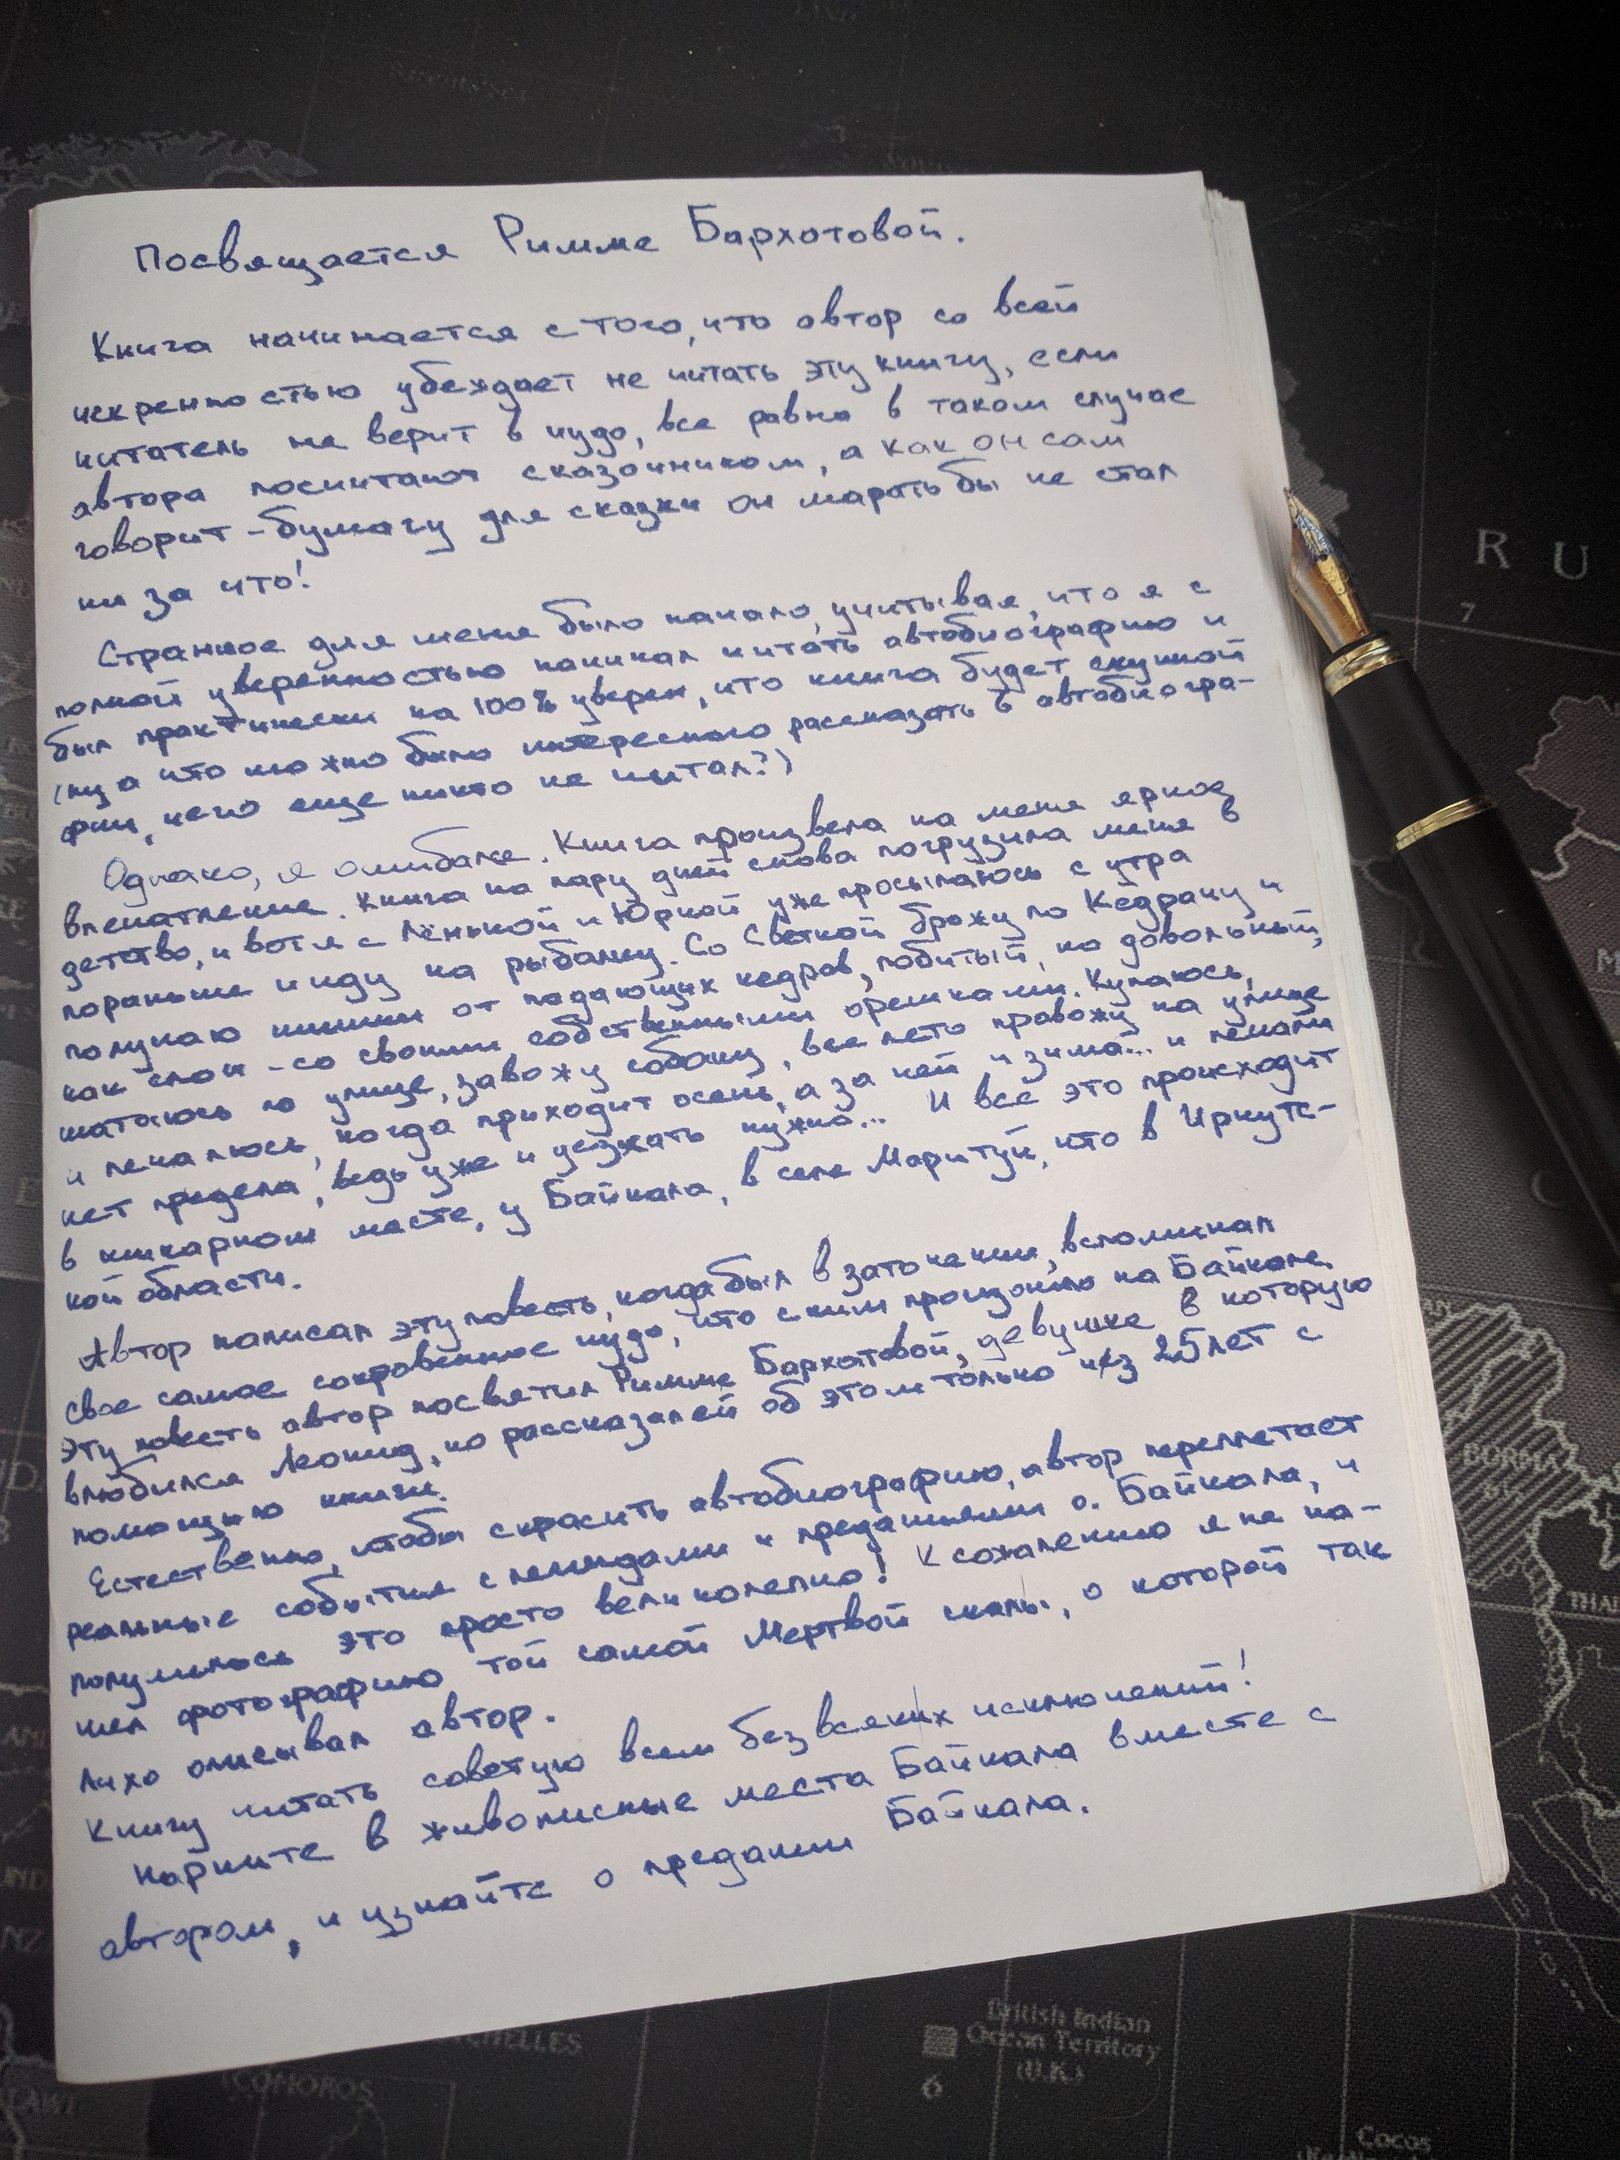 Посвящается Римме Бархотовой.
Книга начинается с того, что автор со всей
искренностью убеждает не читать эту книгу, если
читатель не верит в чудо, все равно в таком случае
автора посчитают сказочником, а как он сам
говорит - бумагу для сказки он марать бы не стал
ни за что!
Странное для меня было начало, учитывая, что я с
полной уверенностью начинал читать автобиографию и
был практически на 100% уверен, что книга будет скучной
(ну а что можно было интересного рассказать в автобиогра-
фии, чего еще никто не читал?)
Однако, я ошибался. Книга произвела на меня яркое
впечатление. Книга на пару дней снова погрузила меня в
детство, и вот я с Лёнькой и Юркой уже просыпаюсь с утра
пораньше и иду на рыбалку. Со Светкой брожу по Кедрачу и
получаю шишки от падающих кедров, побитый, но довольный,
как слон - со своими собственными орешками. Купаюсь,
шатаюсь по улице, завожу собаку, все лето провожу на улице
и печалюсь, когда приходит осень, а за ней и зима... и печали
нет предела, ведь уже и уезжать нужно... И все это происходит
в шикарном месте, у Байкала, в селе Маритуй, что в Иркутс-
кой области.
Автор написал эту повесть, когда был в заточении, вспоминал
свое самое сокровенное чудо, что с ним произошло на Байкале.
Эту повесть автор посвятил Римме Бархатовой, девушке в которую
влюбился Леонид, но рассказал ей об этом только чез 25 лет с
помощью книги.
Естественно, чтобы скрасить автобиографию, автор переплетает
реальные события с легендами и преданиями о. Байкала, и
получилось это просто великолепно! К сожалению я не на-
шел фотографию той самой Мертвой скалы, о которой так
лихо описывал автор.
Книгу читать советую всем без всяких исключений!
Нырните в живописные места Байкала вместе с
автором, и узнайте о предании Байкала.
R U
7
BURMA
THAI
British Indian
Ocean Territory
(U.K.)
6
COMOROS
Cocos